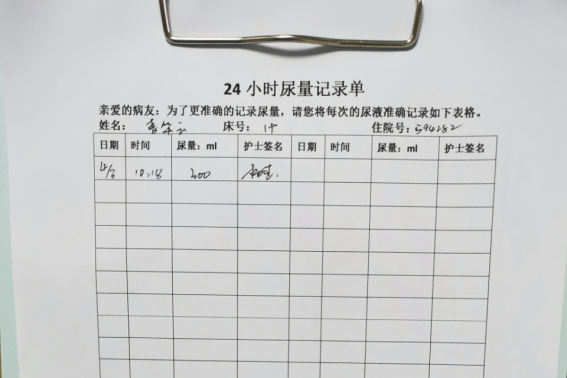 24 小时尿量记录单
亲爱的病友：为了更准确的记录尿量，请您将每次的尿液准确记录如下表格。
姓名： 床号： 住院号：594282
日期 时间 尿量：ml 护士签名 日期 时间 尿量：ml 护士签名
10:18 300